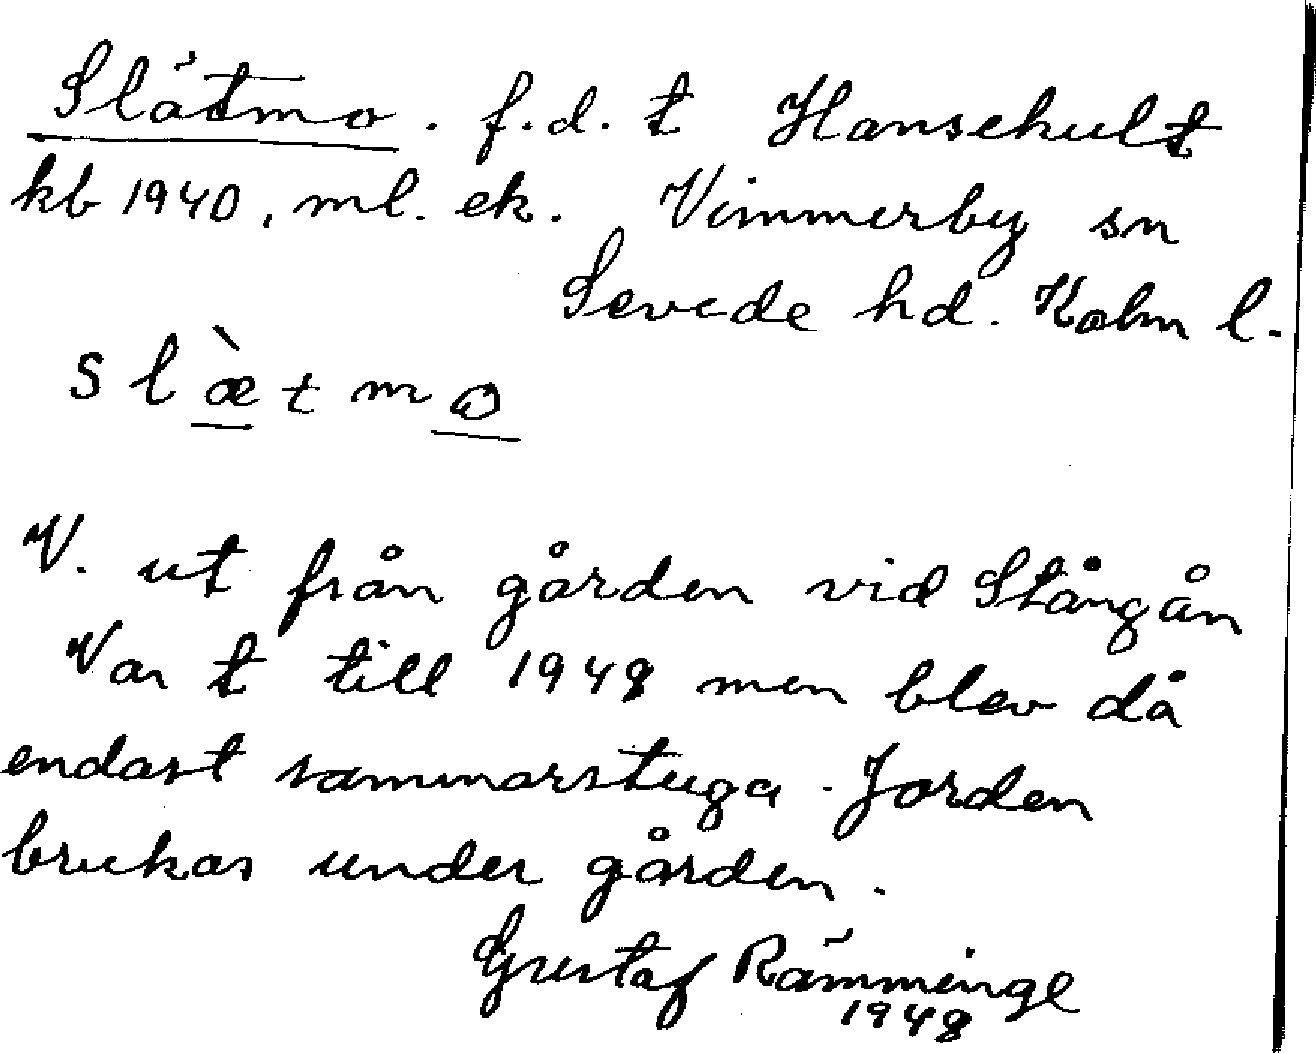 Slätmo. f.d. t Hansehult
kb 1940, ml. ek. Vimmerby sn
Sevede hd. Kalm l.
s l æ̀ t m o
V. ut från gården vid Stångån
Var t till 1948 men blev då
endast sommarstuga. Jorden
brukas under gården.
Gustaf Rämminge
1948